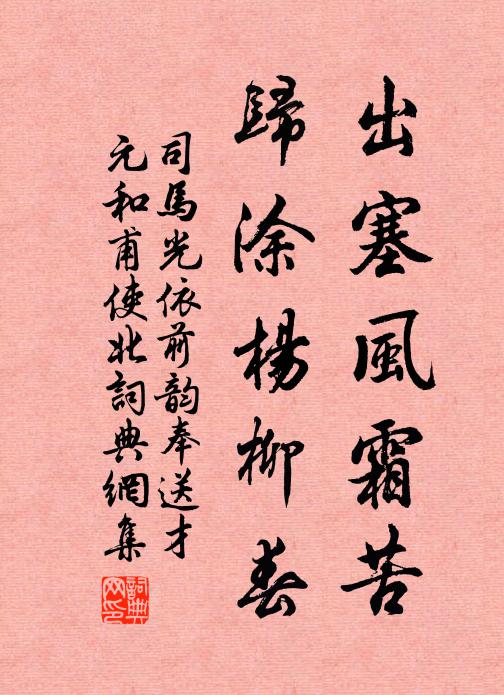 出塞風霜苦
歸涂楊柳春
司馬光依前韵奉送才
元和甫使北詞典網集
詞典
网印